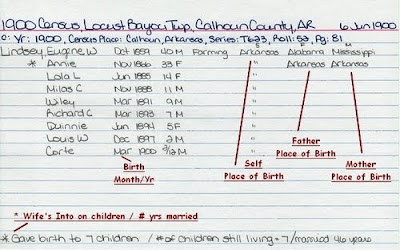 1900 Census Locust Bayou Twp, Calhoun County, AR 6 Jun 1900
c: Yr: 1900, Census Place: Calhoun, Arkansas, Series: T623, Roll: 53, Pg: 81
S F M
Lindsey Eugene W Oct 1859 40 M Farming Arkansas Alabama Mississippi
* Annie Nov 1866 33 F " Arkansas Arkansas
Lola L Jun 1885 14 F "
Milas C Nov 1888 11 M "
Wiley Mar 1891 9 M "
Richard C Mar 1893 7 M "
Quinnie Jun 1894 5 F "
Louis W Dec 1897 2 M "
Corte Mar 1900 2/12 M "
Birth
Month/Yr
Self
Place of Birth
Father
Place of Birth
Mother
Place of Birth
* Wife's Into on children / # yrs married
* Gave birth to 7 children / # of children still living = 7 / married years